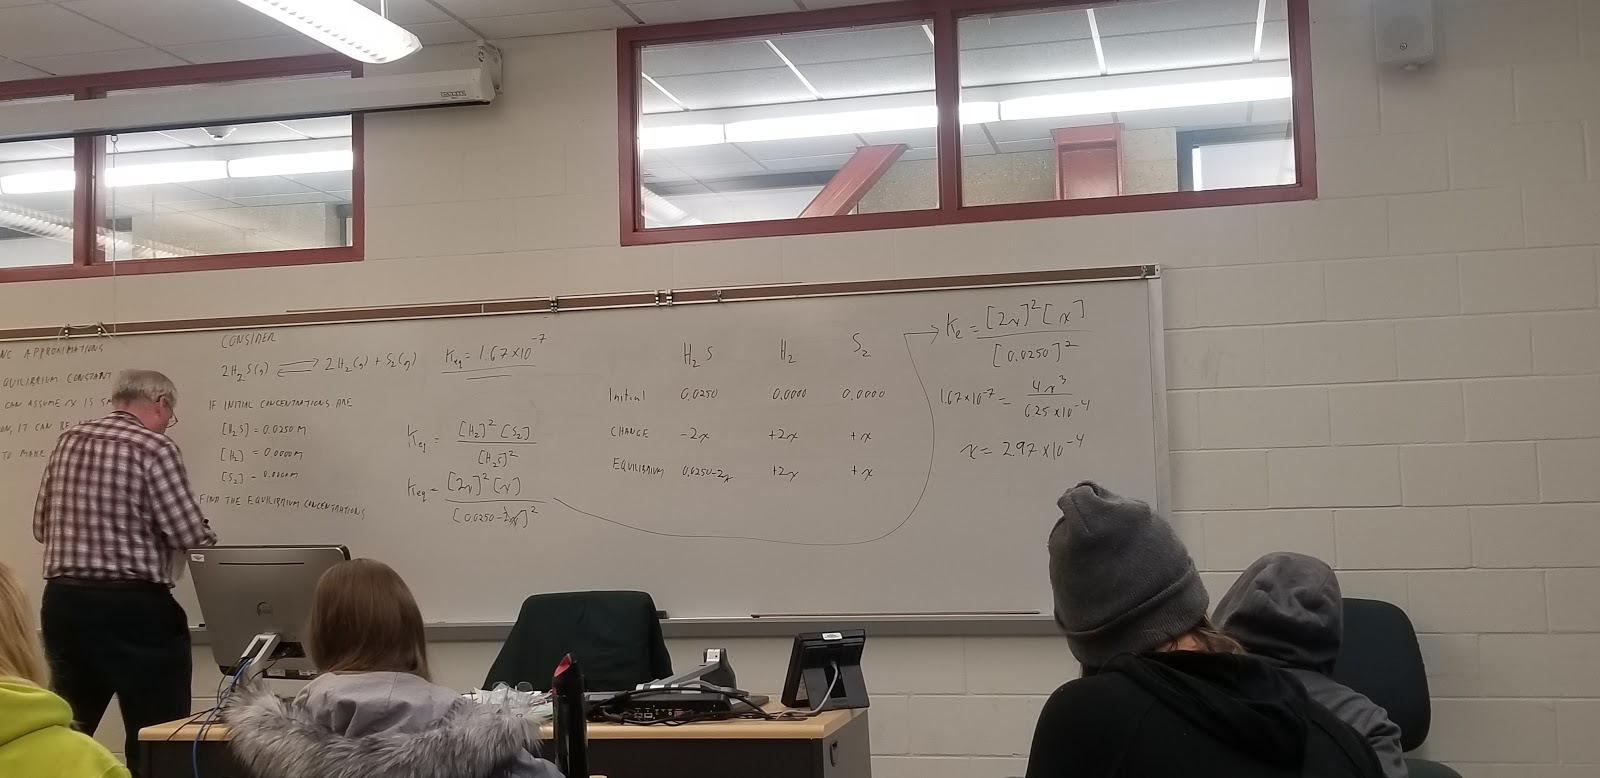 APPROXIMATIONS
EQUILIBRIUM CONSTANT
CAN ASSUME x IS
IT CAN BE
TO MAKE
CONSIDER
2H₂S(g) ⇌ 2H₂(g) + S₂(g)
Keq = 1.67×10⁻⁷
IF INITIAL CONCENTRATIONS ARE
[H₂S] = 0.0250 M
[H₂] = 0.0000 M
[S₂] = 0.0000 M
FIND THE EQUILIBRIUM CONCENTRATIONS
Keq = [H₂]² [S₂] / [H₂S]²
Keq = [2x]² [x] / [0.0250-2x]²
H₂S H₂ S₂
Initial 0.0250 0.0000 0.0000
CHANGE -2x +2x +x
EQUILIBRIUM 0.0250-2x +2x +x
Ke = [2x]² [x] / [0.0250]²
1.67×10⁻⁷ = 4x³ / 6.25×10⁻⁴
x = 2.97×10⁻⁴